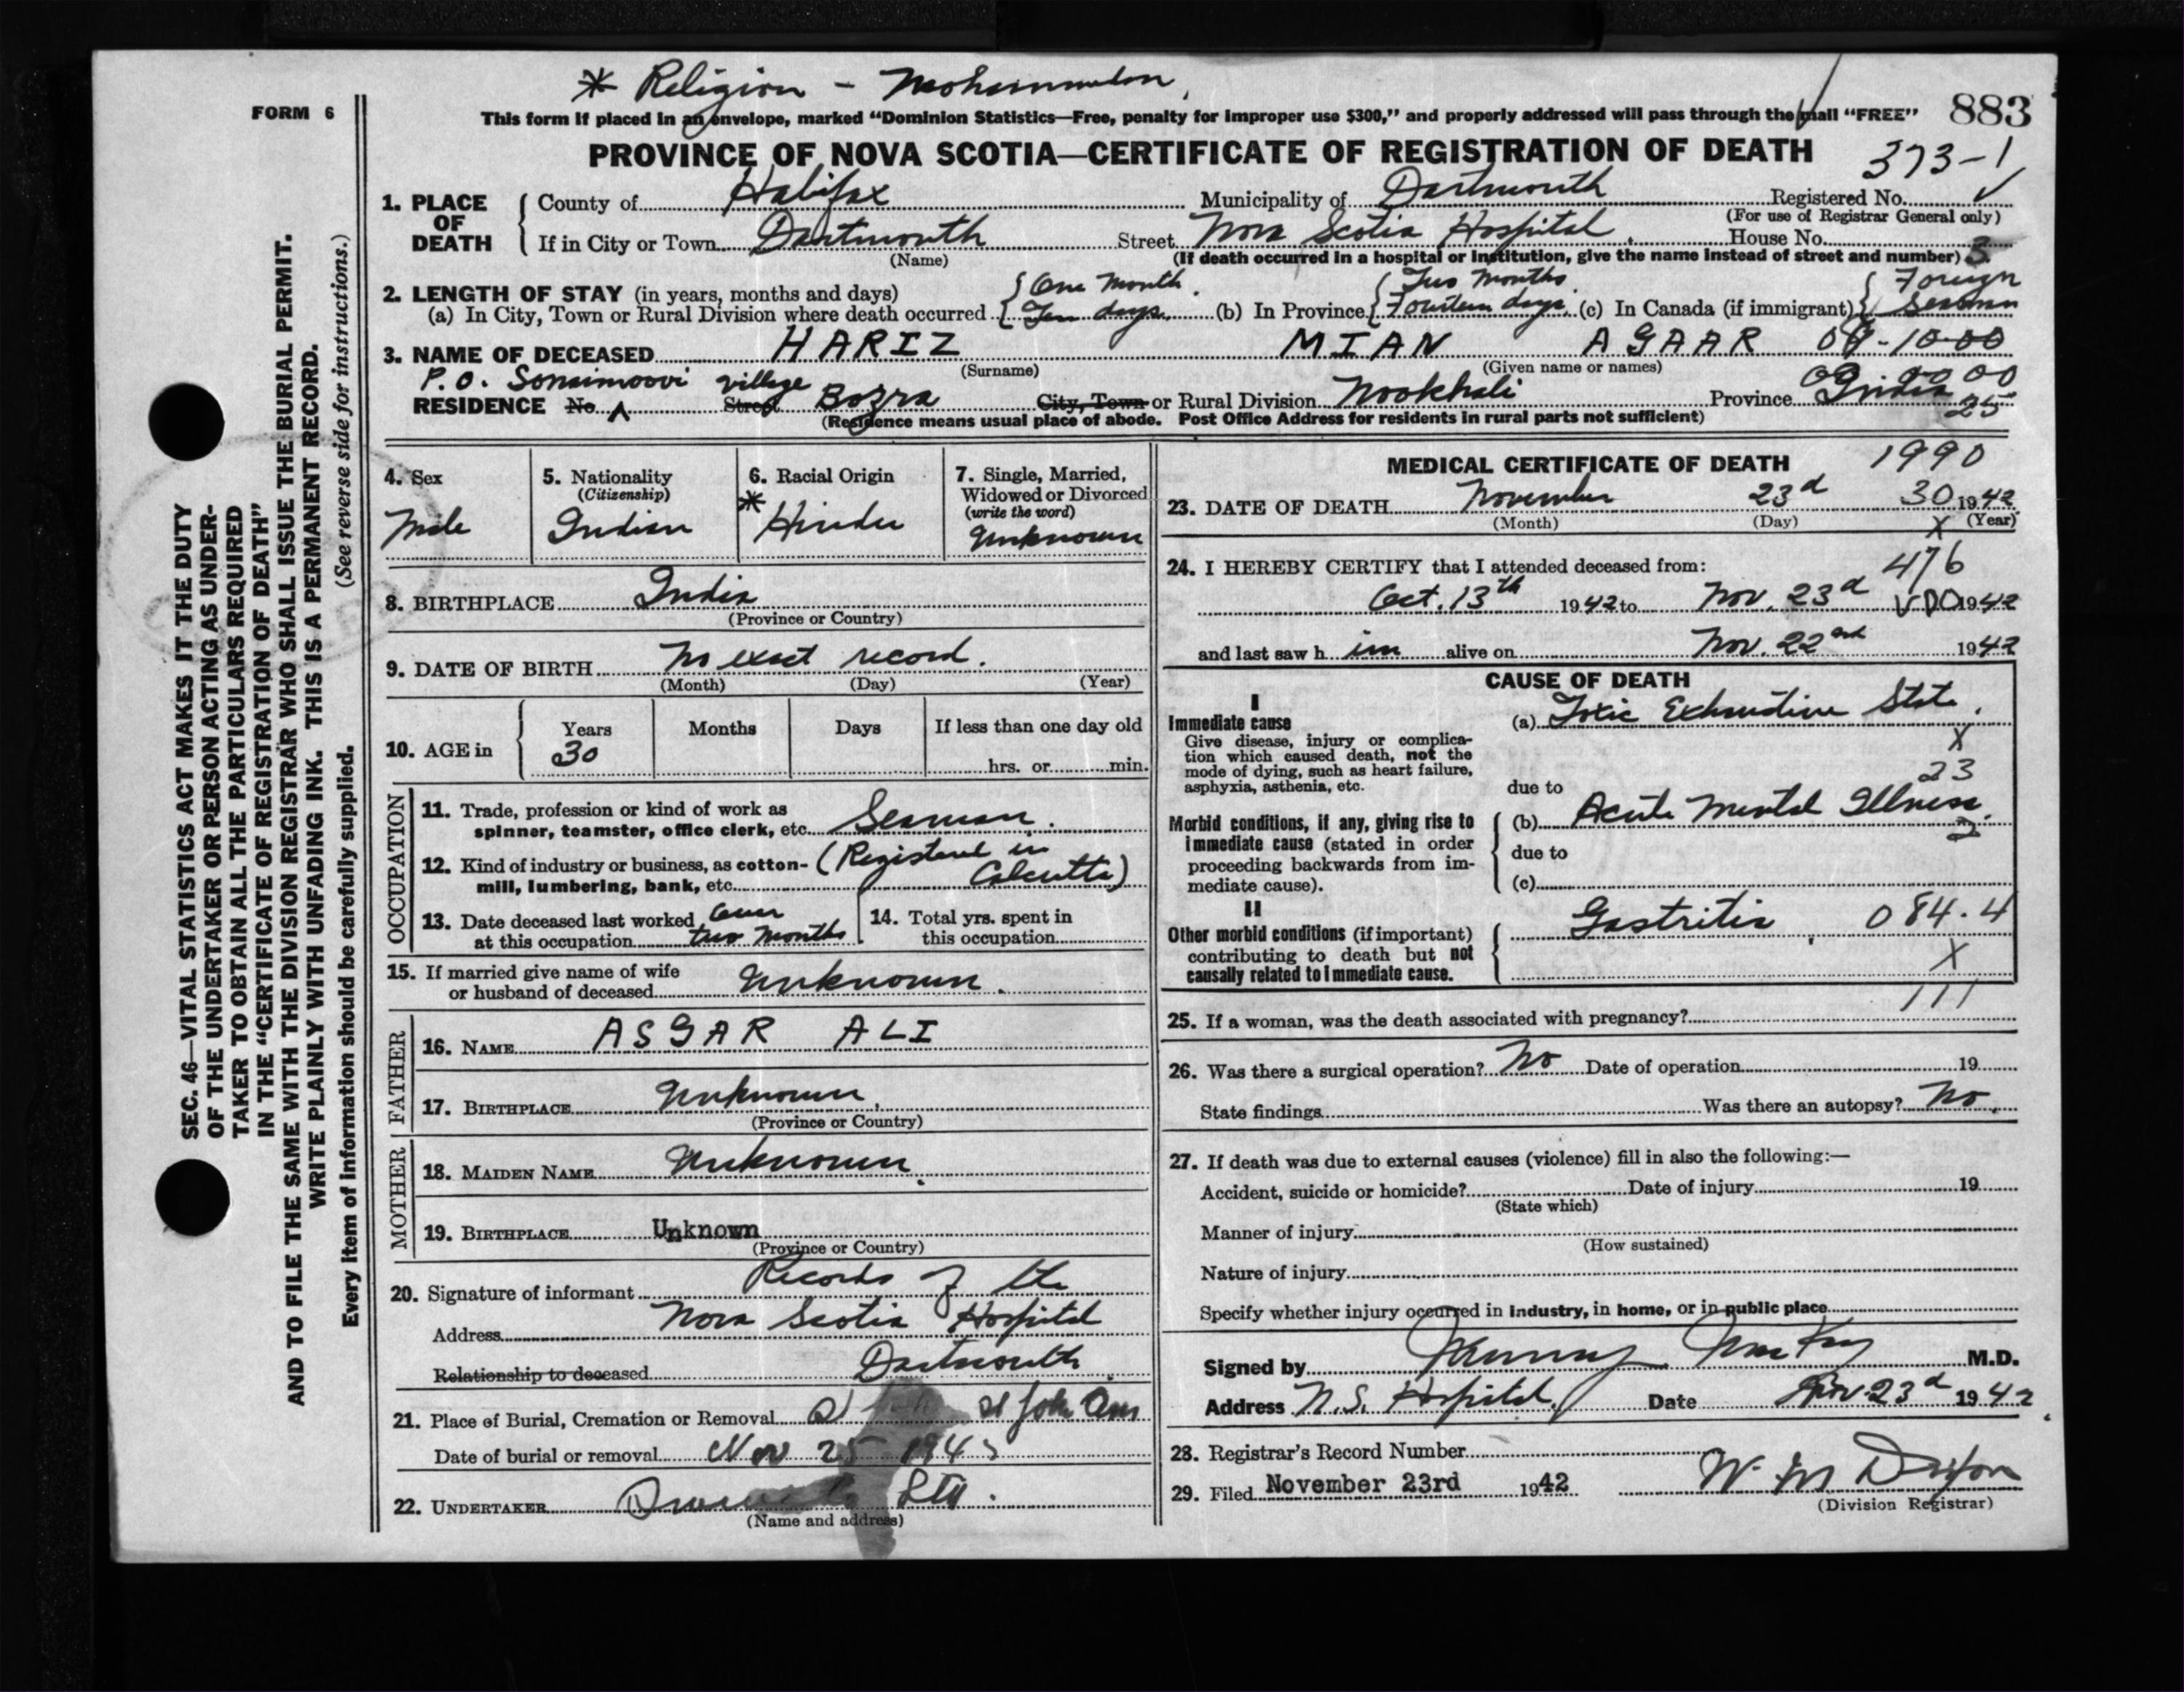 * Religion - Mohammedan
FORM 6
This form if placed in an envelope, marked “Dominion Statistics—Free, penalty for improper use $300,” and properly addressed will pass through the mail “FREE” 883
PROVINCE OF NOVA SCOTIA—CERTIFICATE OF REGISTRATION OF DEATH 373-1
1. PLACE OF DEATH
County of Halifax Municipality of Dartmouth Registered No. ✓
(For use of Registrar General only)
If in City or Town Dartmouth Street Nova Scotia Hospital House No.
(Name) (If death occurred in a hospital or institution, give the name instead of street and number) 3
2. LENGTH OF STAY (in years, months and days)
(a) In City, Town or Rural Division where death occurred { One Month Ten days (b) In Province { Two Months Fourteen days (c) In Canada (if immigrant) { Foreign Seaman
3. NAME OF DECEASED HARIZ MIAN AGAAR
(Surname) (Given name or names)
P.O. Sonaimoovi village
RESIDENCE No. Street Bozra City, Town or Rural Division Nookhali Province India
25
(Residence means usual place of abode. Post Office Address for residents in rural parts not sufficient)
4. Sex
Male
5. Nationality
(Citizenship)
Indian
6. Racial Origin
* Hindu
7. Single, Married,
Widowed or Divorced
(write the word)
Unknown
8. BIRTHPLACE India
(Province or Country)
9. DATE OF BIRTH No exact record.
(Month) (Day) (Year)
10. AGE in
Years Months Days If less than one day old
30 hrs. or min.
OCCUPATION
11. Trade, profession or kind of work as
spinner, teamster, office clerk, etc. Seaman.
12. Kind of industry or business, as cotton-
mill, lumbering, bank, etc. (Registered in Calcutta)
13. Date deceased last worked
at this occupation Over two months
14. Total yrs. spent in
this occupation
15. If married give name of wife
or husband of deceased Unknown.
FATHER
16. NAME ASGAR ALI
17. BIRTHPLACE Unknown.
(Province or Country)
MOTHER
18. MAIDEN NAME Unknown.
19. BIRTHPLACE Unknown
(Province or Country)
20. Signature of informant Records of the
Address Nova Scotia Hospital
Relationship to deceased Dartmouth
21. Place of Burial, Cremation or Removal
Date of burial or removal Nov 25 194
22. UNDERTAKER Ltd.
(Name and address)
MEDICAL CERTIFICATE OF DEATH 1990
23. DATE OF DEATH November 23d 30 1942
(Month) (Day) X (Year)
24. I HEREBY CERTIFY that I attended deceased from: 476
Oct. 13th 1942 to Nov. 23d 1942
and last saw him alive on Nov. 22nd 1942
CAUSE OF DEATH
I
Immediate cause
Give disease, injury or complica-
tion which caused death, not the
mode of dying, such as heart failure,
asphyxia, asthenia, etc.
(a) Toxic Exhaustive State.
X
23
due to
Morbid conditions, if any, giving rise to
immediate cause (stated in order
proceeding backwards from im-
mediate cause).
(b) Acute Mental Illness.
2
due to
(c)
II
Other morbid conditions (if important)
contributing to death but not
causally related to immediate cause.
Gastritis 084.4
X
111
25. If a woman, was the death associated with pregnancy?
26. Was there a surgical operation? No Date of operation 19
State findings Was there an autopsy? No.
27. If death was due to external causes (violence) fill in also the following:—
Accident, suicide or homicide? Date of injury 19
(State which)
Manner of injury
(How sustained)
Nature of injury
Specify whether injury occurred in industry, in home, or in public place
Signed by Murray MacKay M.D.
Address N.S. Hospital Date Nov. 23d 1942
28. Registrar’s Record Number
29. Filed November 23rd 1942
(Division Registrar)
SEC. 46—VITAL STATISTICS ACT MAKES IT THE DUTY
OF THE UNDERTAKER OR PERSON ACTING AS UNDER-
TAKER TO OBTAIN ALL THE PARTICULARS REQUIRED
IN THE “CERTIFICATE OF REGISTRATION OF DEATH”
AND TO FILE THE SAME WITH THE DIVISION REGISTRAR WHO SHALL ISSUE THE BURIAL PERMIT.
WRITE PLAINLY WITH UNFADING INK. THIS IS A PERMANENT RECORD.
Every item of information should be carefully supplied. (See reverse side for instructions.)